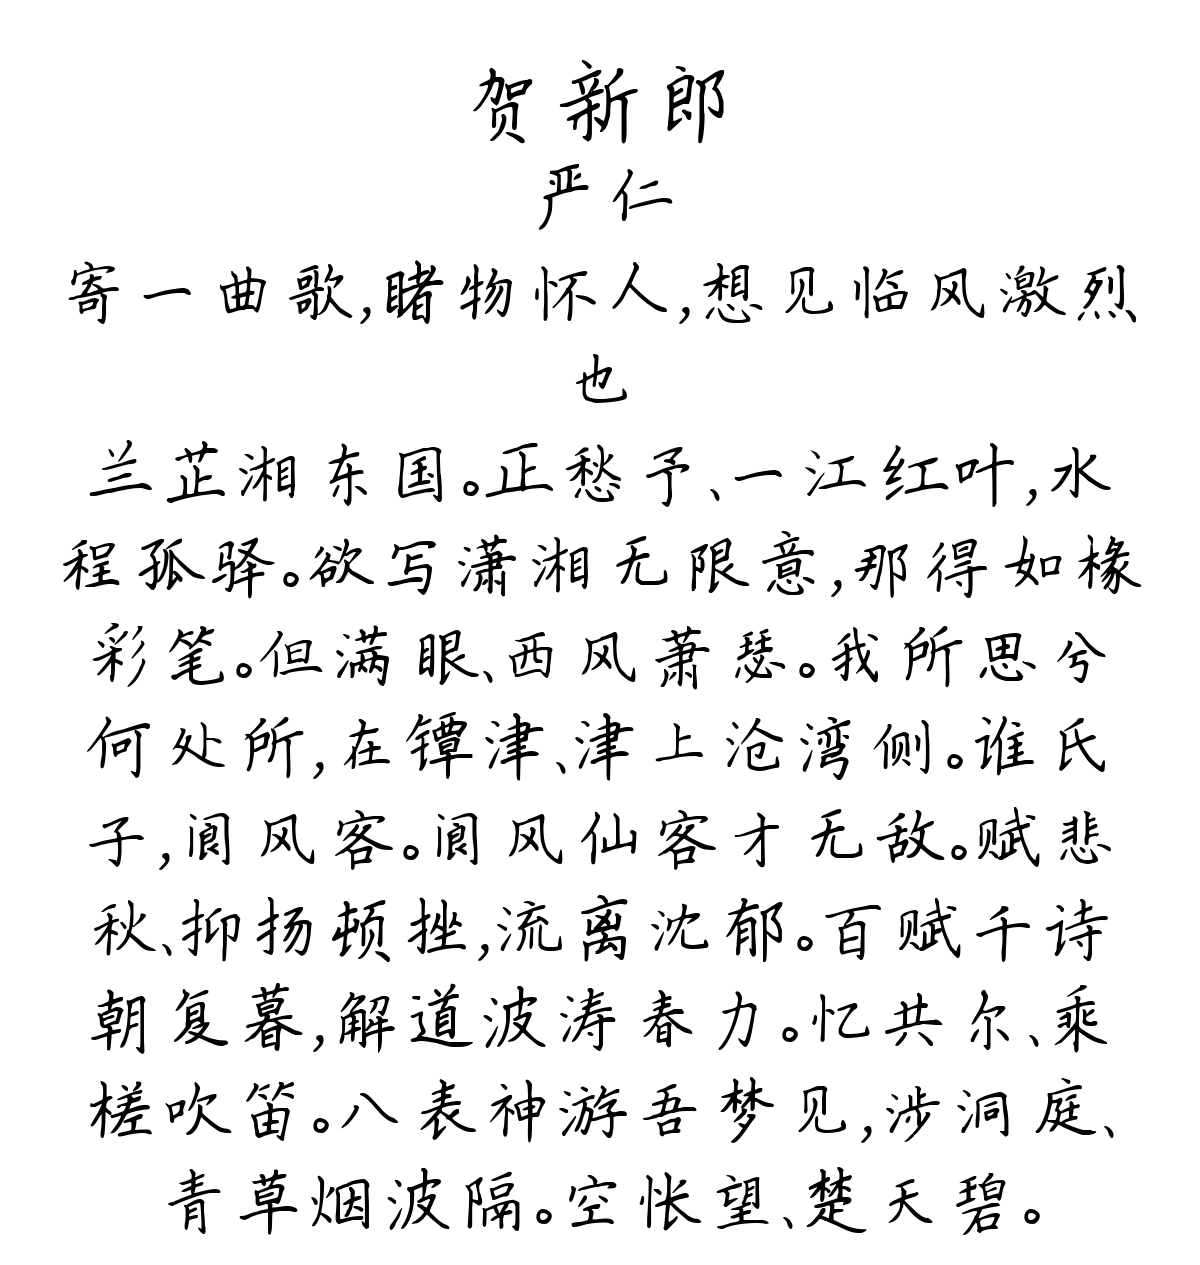 贺新郎
严仁
寄一曲歌,睹物怀人,想见临风激烈
也
兰芷湘东国。正愁予、一江红叶,水
程孤驿。欲写潇湘无限意,那得如椽
彩笔。但满眼、西风萧瑟。我所思兮
何处所,在镡津、津上沧湾侧。谁氏
子,阆风客。阆风仙客才无敌。赋悲
秋、抑扬顿挫,流离沈郁。百赋千诗
朝复暮,解道波涛春力。忆共尔、乘
槎吹笛。八表神游吾梦见,涉洞庭、
青草烟波隔。空怅望、楚天碧。